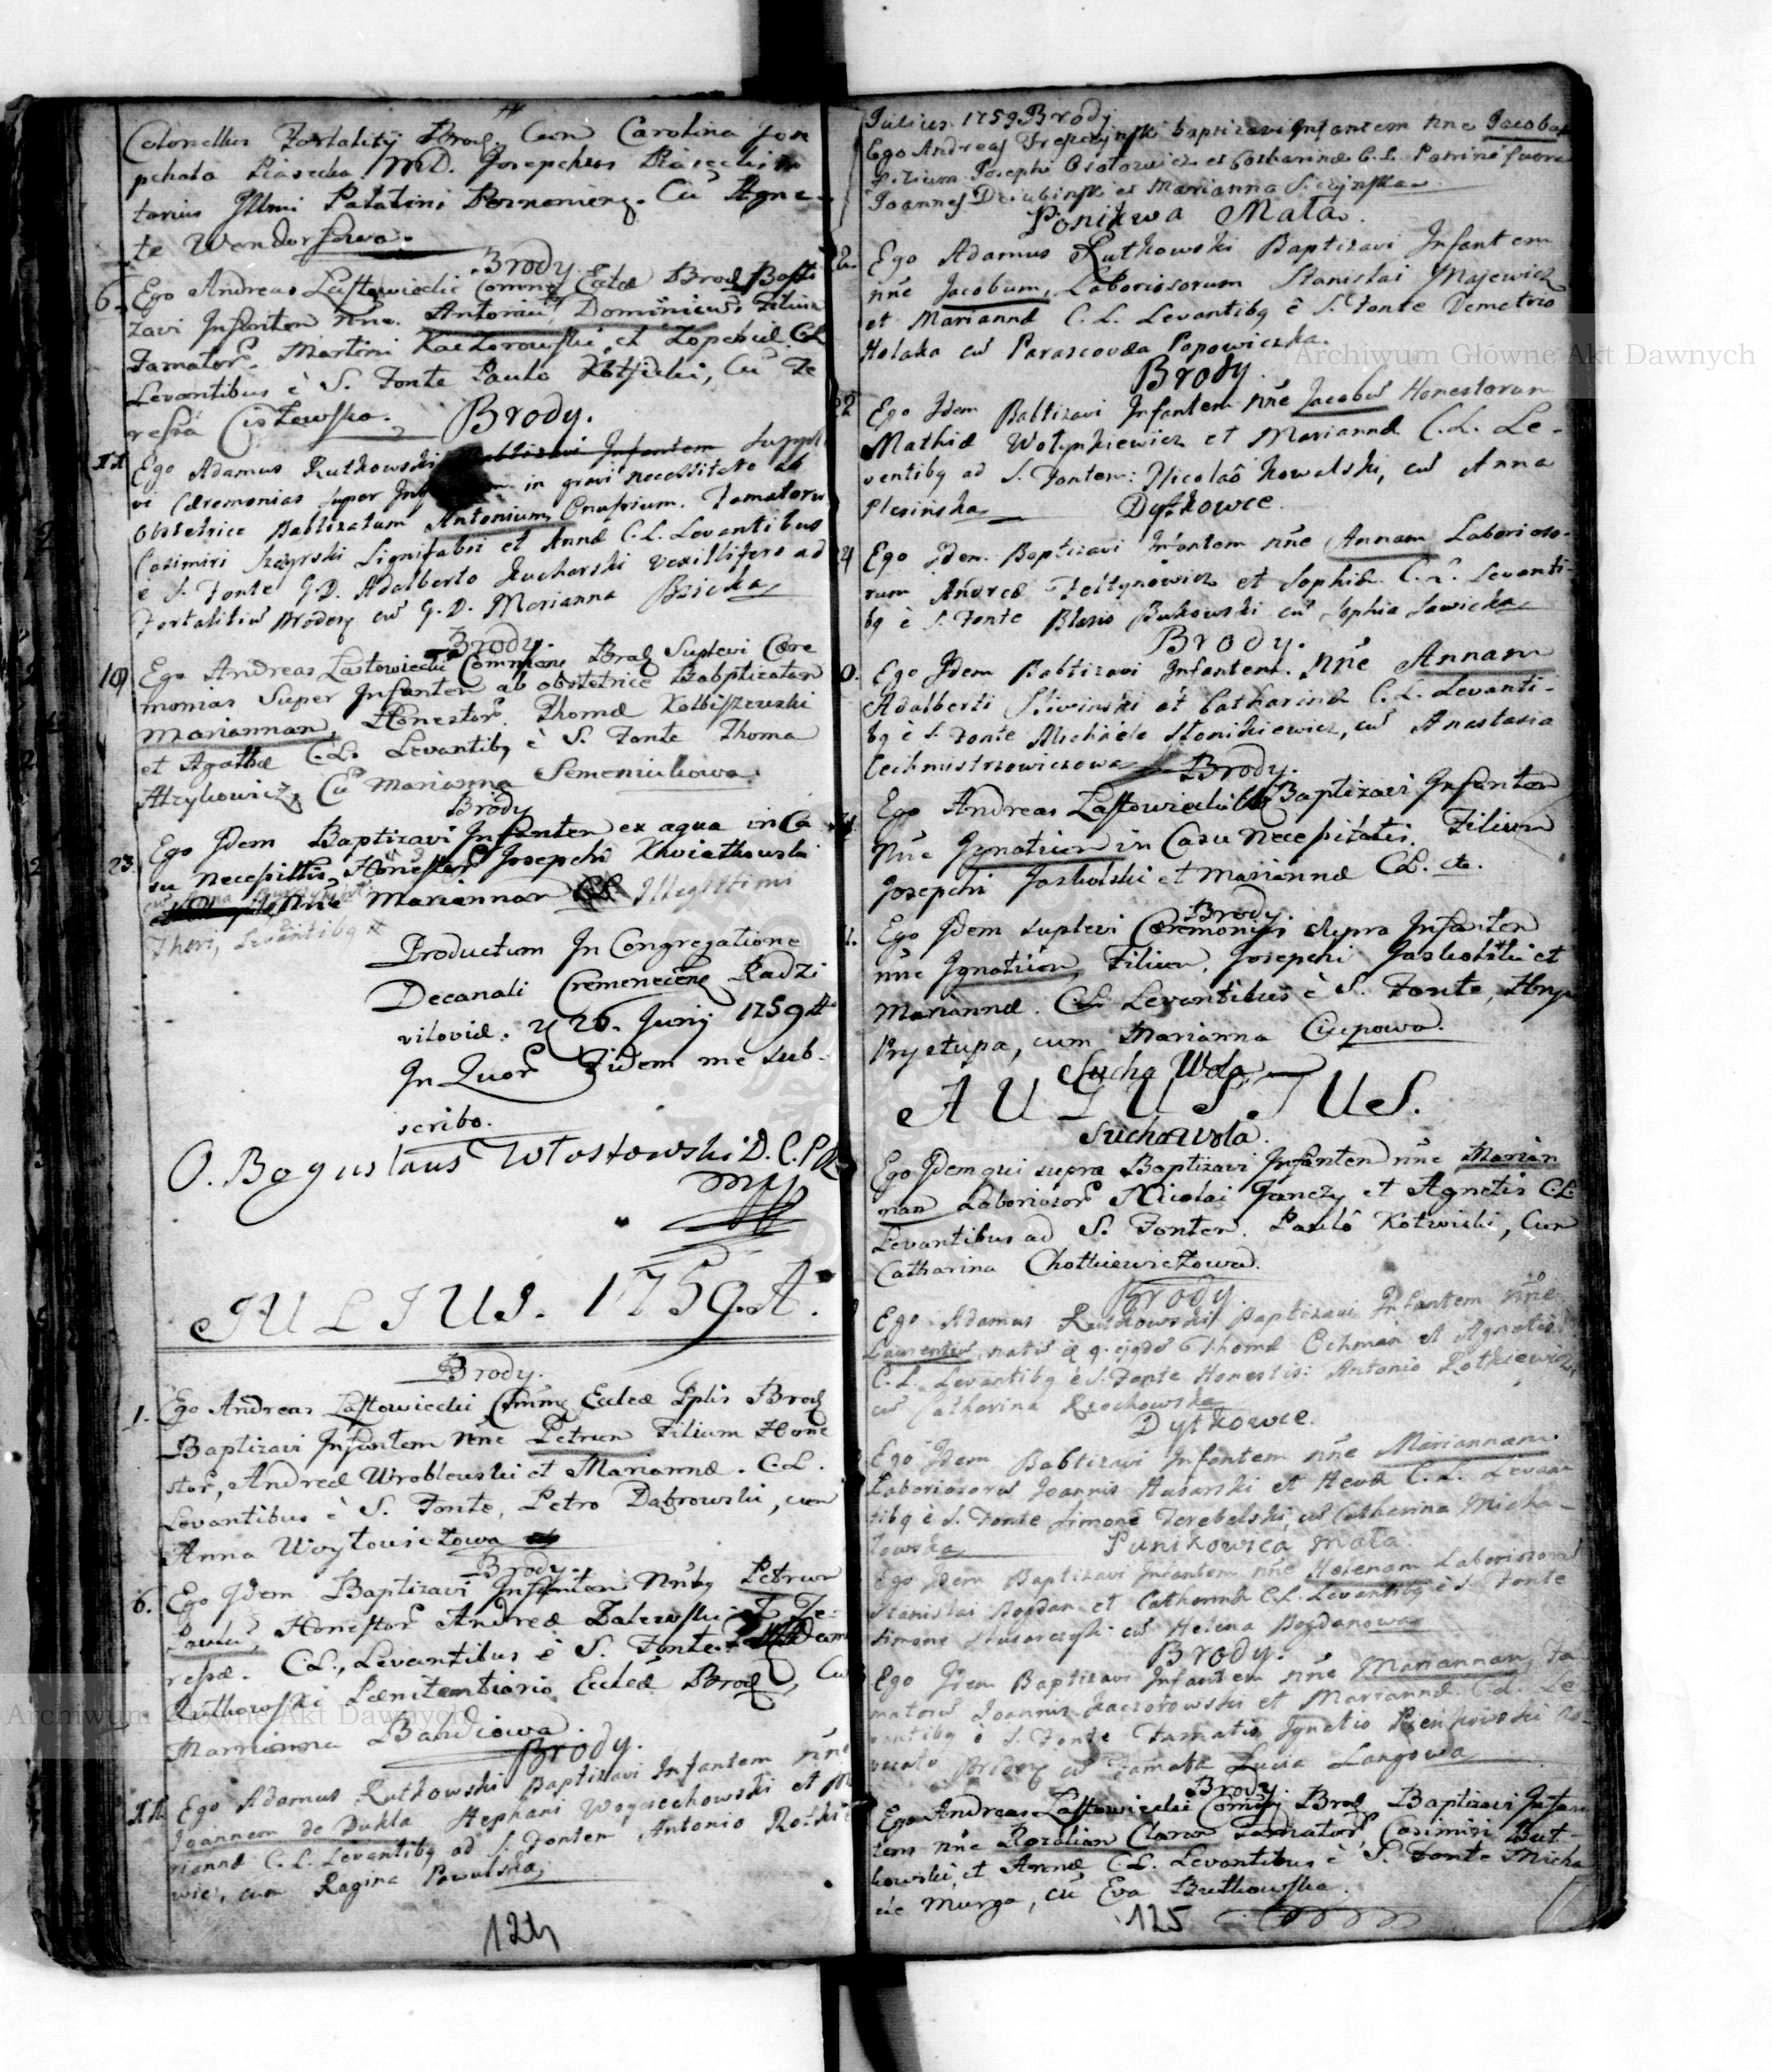 Colonellus Fortalitÿ Brod. Cum Carolina Jon
pchata Piasecka. M.D. Josephus Piasecki
tarius Illmi Palatini Poznanieng. Cũ Agne-
te Wendorfowa.
Brody.
6. Ego Andreas Lastowiecki Commg Eclæ Brod Bapti
zavi Infanten nne. Antoniũ Dominicũ Filium
Famator. Martini Kaczorowski, et Zophiæ C.L.
Levantibus è S. Fonte Paulo Kotficki, Cũ Te
resia Cistowska.
Brody.
11 Ego Adamus Rutkowski Babtizavi Infantem Supple
vi Cæremonias super in gravi necessitate ab
Obstetrice Babtizatum Antonium Onufrium. Famatoru
Casimiri Lignifabri et Annæ C.L. Levantibus
è S. Fonte G.D. Adalberto Kucharski Vexillifero ad
Fortalitiũ Brodeng cũ G.D. Marianna Bzicka
Brody.
10 Ego Andreas Lastowiecki Commg Brod Suplevi Cære
monias Super Infanten ab obstetrice Babptizatan
Mariannan, Honestor. Thomæ Kolbiszewski
et Agathæ C.L. Levantibg è S. Fonte Thoma
Cũ Marianna Semeniukowa.
Brody
23. Ego Jdem Baptizavi Infanten ex aqua in Ca
su necessittis Honestor Josephi Kwiatkowski
nne Mariannan C.L. Illegittimi
Thori, Levantibg
Productum In Congregatione
Decanali Cremenecene Radzi
viloviæ. 26. Junÿ 1759 A
In Quor Fidem me sub-
scribo.
O. Boguslaus Wlostowski D.C.P
mp
JULIUS. 1759. A.
Brody.
1. Ego Andreas Lastowiecki Commg Eclæ Pplis Brod
Baptizavi Infantem nne Petrum Filium Hone
stor, Andreæ Wroblewski et Mariannæ. C.L.
Levantibus è S. Fonte, Petro Dabrowski, cum
Anna Woytowiczowa
Brody.
6. Ego Jdem Baptizavi Infanten Nnibg Petrum
Paulũ, Honestor Andreæ Zalewski et Te-
resiæ. C.L., Levantibus è S. Fonte Adam
Rutkowski Pænitentiario Eclæ Brod, Cũ
Marianna Bandiowa.
Brody.
11 Ego Adamus Rutkowski Baptizavi Infantem nne
Joannem de Dukla, Stephani Woyciechowski et M
riannæ C.L. Levantibg ad S. Fontem Antonio Rotkie
wic, cum Ragina Pawulska
124
Julius 1759 Brody
Ego Andreas baptizavi Infantem nne Jacobum
Filium Josephi et Catharinæ C.L. Patrini fuere
Joannes Dziubinski et Marianna
Ponikwa Mała.
Ego Adamus Rutkowski Baptizavi Infantem
nne Jacobum, Laboriosorum Stanislai Majewicz
et Mariannæ C.L. Levantibg è S. Fonte Demetrio
Holaka cũ Parascovda Popowiczka.
Brody.
22 Ego Jdem Babtizavi Infantem nne Jacobũ Honestorum
Mathiæ Wolynkiewicz et Mariannæ C.L. Le-
ventibg ad S. Fontem: Nicolaô Kowalski, cũ Anna
Plesinska
Dytkowce.
24 Ego Jdem. Baptizavi Infantem nne Annam Laborioso-
rum Andreæ Feltynowicz et Sophiæ C.L. Levanti-
bg è S. Fonte Blasio Bukowski cũ Sophia Sawicka
Brody.
0. Ego Jdem Babtizavi Infantem. nne Annam
Adalberti Sliwinski et Catharinæ C.L. Levanti-
bg è S. Fonte Michaele Slonikiewicz, cũ Anastasia
Cechmistrzowiczowa
Brody.
Ego Andreas Lastowiecki Baptizavi Infanten
nne Ignatium in Casu necessitatis. Filium
Josephi Jaskolski et Mariannæ C.L. etc.
Brody.
1. Ego Jdem suplevi Cæremonias supra Infanten
nne Ignatium, Filium, Josephi Jaskolski et
Mariannæ. C.L. Levantibus è S. Fonte, Hryc
Prystupa, cum Marianna Ciupowa.
Sucha Wola
AUGUSTUS.
Suchawola.
Ego Jdem qui supra Baptizavi Infanten nne Marian
nan Laboriosor Nicolai Janczy et Agnetis C.L.
Levantibus ad S. Fonten. Paulô Kotwicki, Cum
Catharina Chotkiewiczowa.
Brody
Ego Adamus Rutkowski Baptizavi Infantem nne
Laurentiũ, natũ Thomæ Ochman et Agnetis
C.L. Levantibg è S. Fonte Honestis: Antonio Rotkiewicz,
cũ Catharina Rzochowska
Dytkowce.
Ego Jdem Babtizavi Infantem nne Mariannam
Laboriosorũ Joannis Husarski et Hevæ C.L. Levan
tibg è S. Fonte Simone Terebelski, cũ Catherina Micha-
lowska
Punikowica Mała.
Ego Jdem Baptizavi Infantem nne Helenam Laboriosorũ
Stanislai Bogdan et Catherinæ C.L. Levantibg è S. Fonte
Simone cũ Helena Bogdanowa
Brody.
Ego Jdem Baptizavi Infantem nne Mariannam, Fa
matorũ Joannis Kaczorowski et Mariannæ C.L. Le
vantibg è S. Fonte Famatis Ignatio Pienkowski
cũ Famata Lucia Langowa
Brody.
Ego Andreas Lastowiecki Commg Brod Baptizavi Infan
tem nne Rozalian Claram Famator, Casimiri But-
kowski, et Annæ C.L. Levantibus è S. Fonte Micha
ele Murga, cũ Eva Brutkowska.
125
Archiwum Główne Akt Dawnych
Archiwum Główne Akt Dawnych